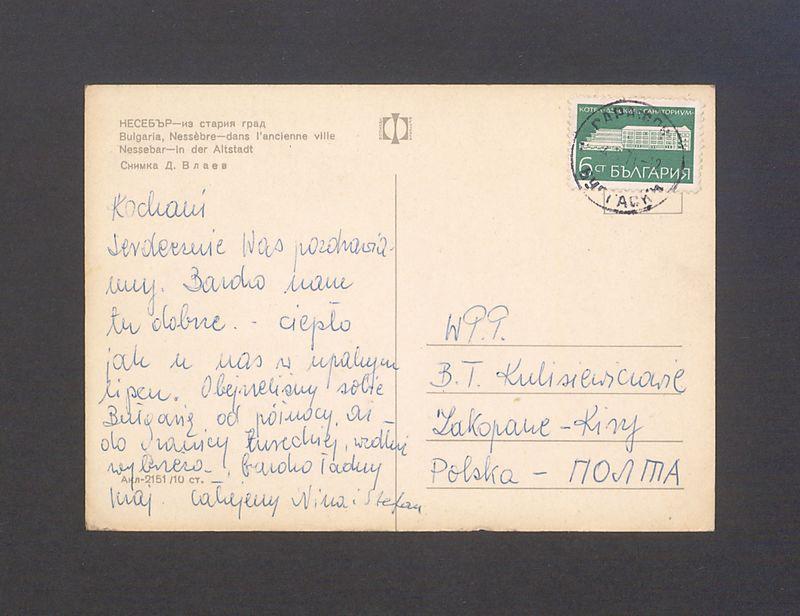 НЕСЕБЪР—из стария град
Bulgaria, Nessèbre—dans l'ancienne ville
Nessebar—in der Altstadt
Снимка Д. Влаев
САНАТОРИУМ
6 СТ БЪЛГАРИЯ
Kochani
Serdecznie Was pozdrawia-
my. Bardzo nam
tu dobrze. - ciepło
jak u nas w upalnym
lipcu. Objechaliśmy sobie
Bułgarię od północy, aż
do granicy tureckiej, wzdłuż
wybrzeża, bardzo ładny
Акл-2151/10 ст.
kraj. Całujemy Nina i Stefan
W P.P.
B.T. Kulisiewiczowie
Zakopane - Kiry
Polska - ПОЛША